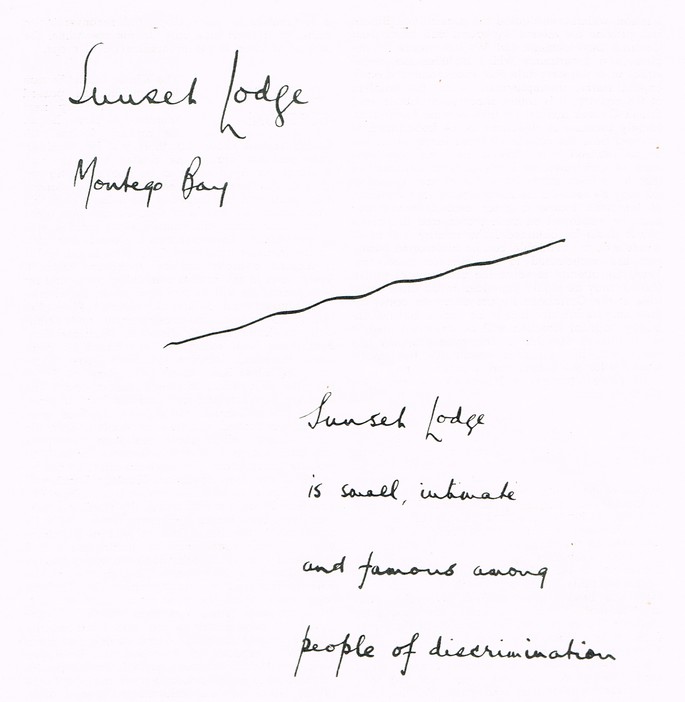 Sunset Lodge
Montego Bay
Sunset Lodge
is small, intimate
and famous among
people of discrimination